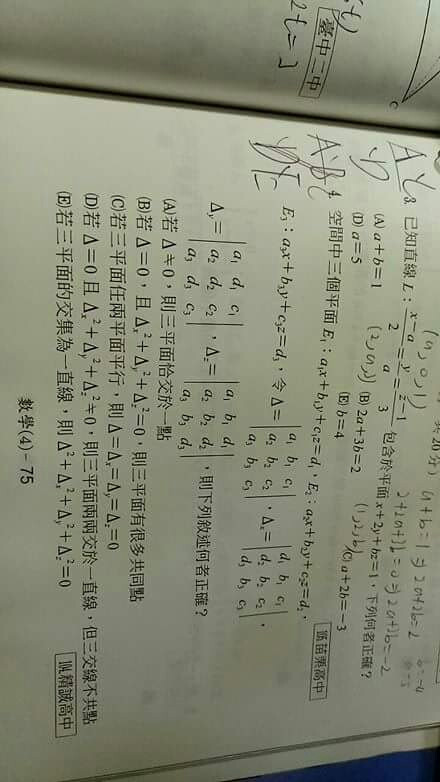 臺中二中
3. 已知直線 L：(x-a)/2 = y/a = (z-1)/3 包含於平面 x+2y+bz=1，下列何者正確？
(A) a+b=1 (B) 2a+3b=2 (C) a+2b=-3
(D) a=5 (E) b=4
苗栗高中
4. 空間中三個平面 E₁：a₁x+b₁y+c₁z=d₁，E₂：a₂x+b₂y+c₂z=d₂，
E₃：a₃x+b₃y+c₃z=d₃，令 Δ= | a₁ b₁ c₁ ; a₂ b₂ c₂ ; a₃ b₃ c₃ |，Δₓ= | d₁ b₁ c₁ ; d₂ b₂ c₂ ; d₃ b₃ c₃ |，
Δᵧ= | a₁ d₁ c₁ ; a₂ d₂ c₂ ; a₃ d₃ c₃ |，Δz= | a₁ b₁ d₁ ; a₂ b₂ d₂ ; a₃ b₃ d₃ |，則下列敘述何者正確？
(A)若 Δ≠0，則三平面恰交於一點
(B)若 Δ=0，且 Δₓ²+Δᵧ²+Δz²=0，則三平面有很多共同點
(C)若三平面任兩平面平行，則 Δ=Δₓ=Δᵧ=Δz=0
(D)若 Δ=0 且 Δₓ²+Δᵧ²+Δz²≠0，則三平面兩兩交於一直線，但三交線不共點
(E)若三平面的交集為一直線，則 Δ²+Δₓ²+Δᵧ²+Δz²=0
精誠高中
數學(4)－75